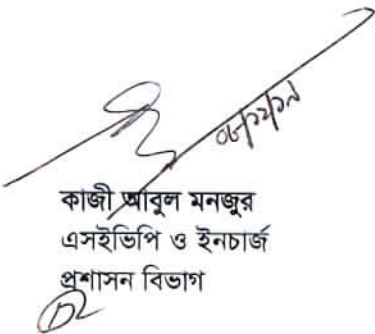 ০৮/১২/১৯
কাজী আবুল মনজুর
এসইভিপি ও ইনচার্জ
প্রশাসন বিভাগ